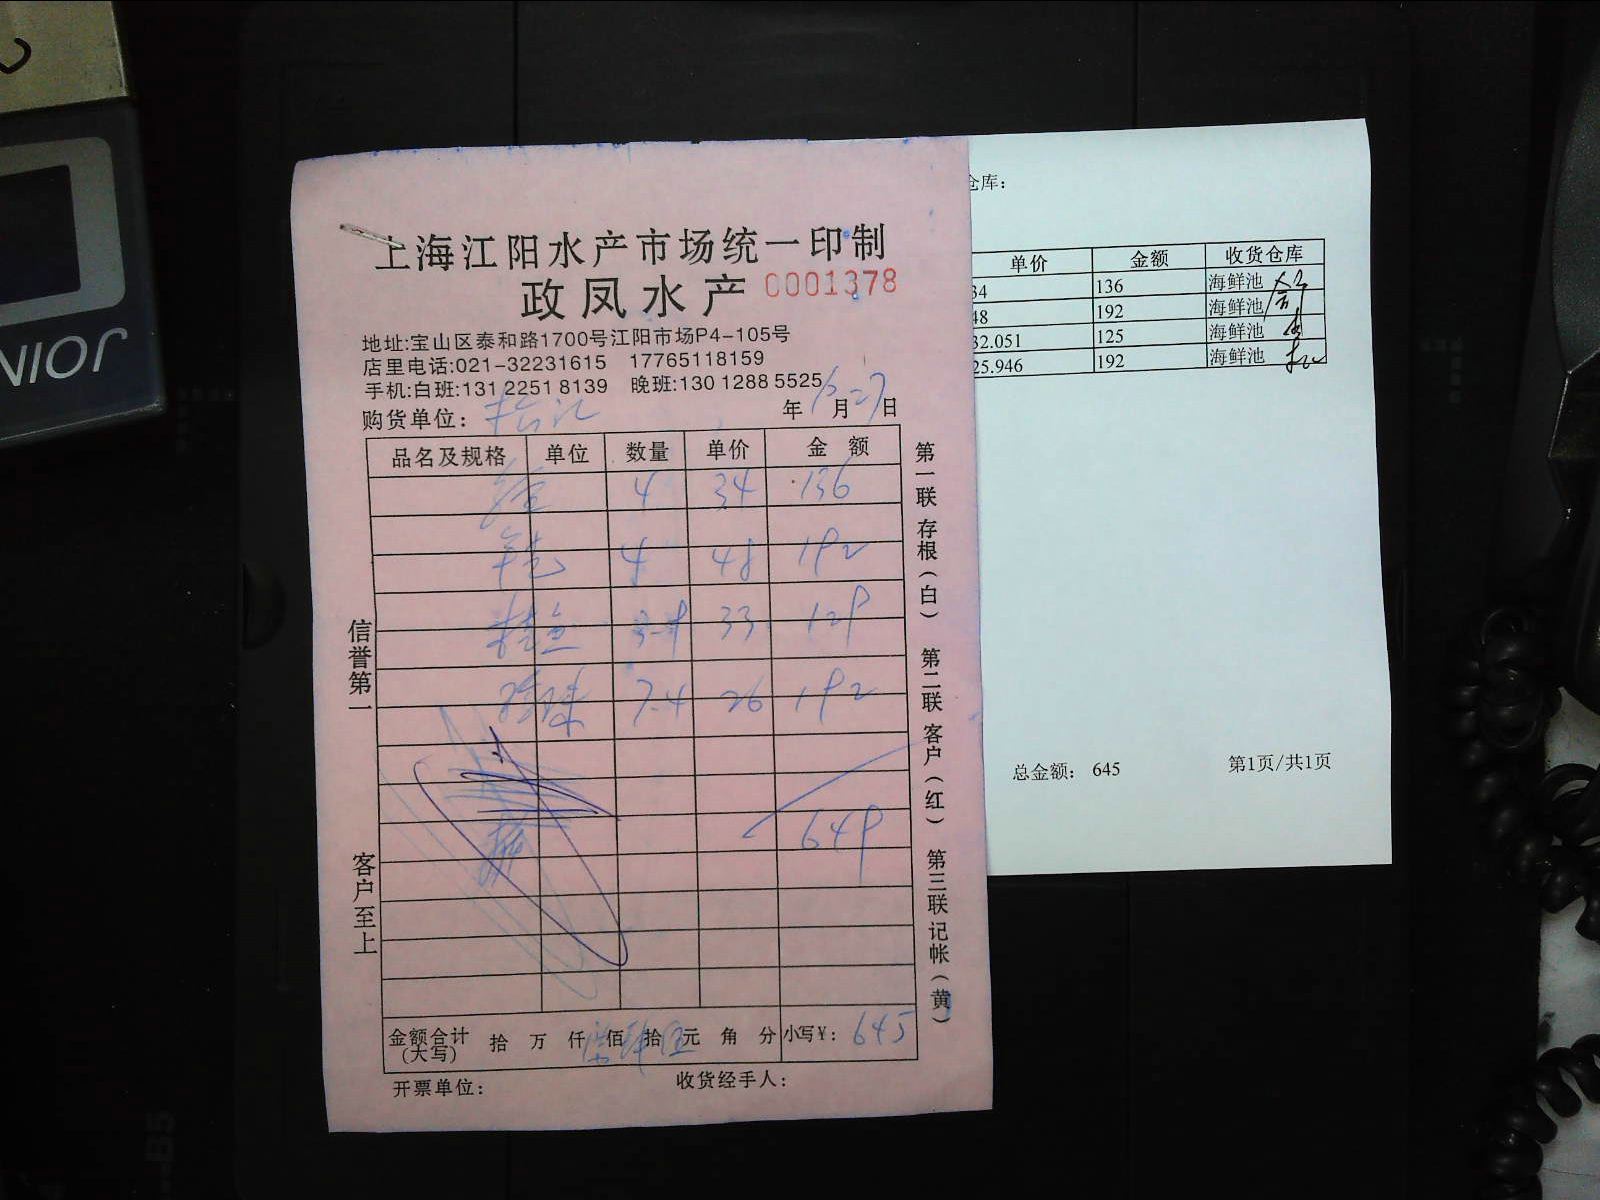 JOINIOR
上海江阳水产市场统一印制
政凤水产 0001378
地址:宝山区泰和路1700号江阳市场P4-105号
店里电话:021-32231615 17765118159
手机:白班:131 2251 8139 晚班:130 1288 5525
购货单位: 年 月27日
品名及规格 单位 数量 单价 金 额
4 34 136
4 48 192
33 129
7.4 26 192
649
金额合计(大写) 拾 万 仟 佰 拾 元 角 分 小写¥: 645
开票单位: 收货经手人:
信誉第一 客户至上
第一联存根(白) 第二联客户(红) 第三联记帐(黄)
仓库:
单价 金额 收货仓库
34 136 海鲜池
48 192 海鲜池
32.051 125 海鲜池
25.946 192 海鲜池
总金额: 645 第1页/共1页